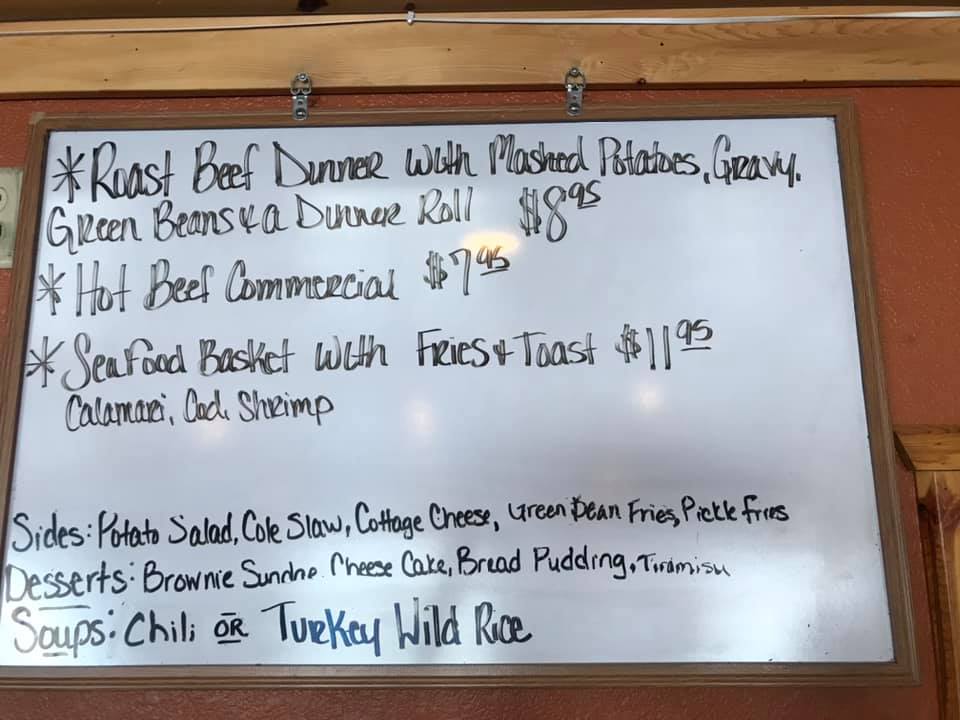 *Roast Beef Dinner with Mashed Potatoes, Gravy,
Green Beans & a Dinner Roll $8.95
*Hot Beef Commercial $7.95
*Seafood Basket with Fries & Toast $11.95
Calamari, Cod, Shrimp
Sides: Potato Salad, Cole Slaw, Cottage Cheese, Green Bean Fries, Pickle fries
Desserts: Brownie Sundae, Cheese Cake, Bread Pudding, Tiramisu
Soups: Chili OR Turkey Wild Rice